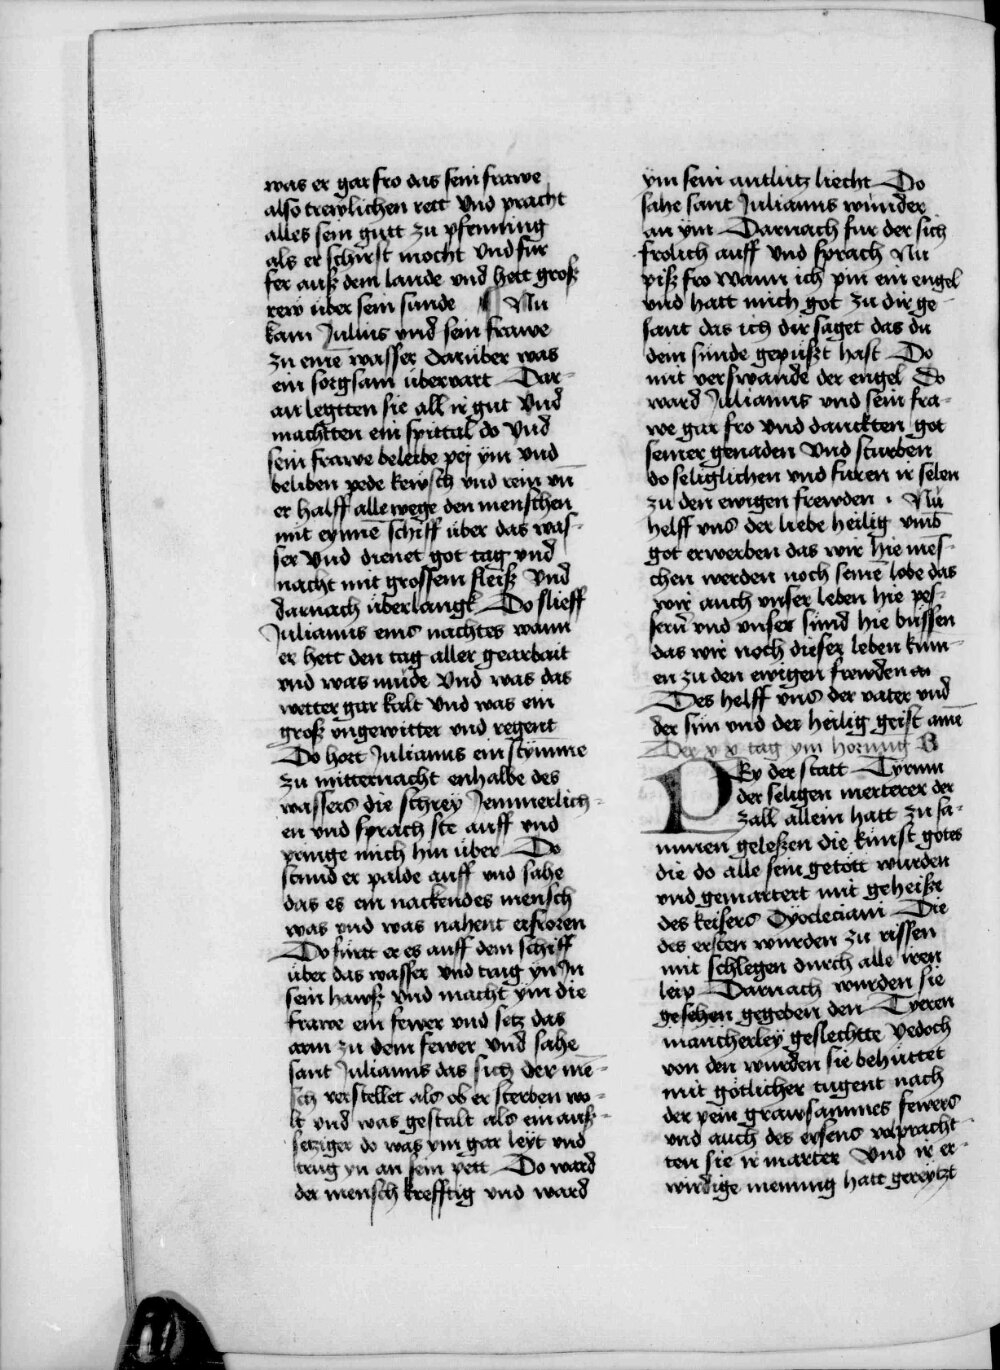 was er gar fro das sein frawe
also trewlichen rett vnd pracht
alles sein gutt zu pfenning
als er schirst mocht vnd fur
fer auß dem lande vnd hett groß
rew uber sein sunde ¶ Nu
kam Julius vnd sein frawe
zu eine̅ wasser daruber was
ein sorgsam ubervart Dar-
an legtten sie all ir gut vnd
machtten ein spittal do vnd
sein frawe beleibe pej ym vnd
beliben pede kewsch vnd rein vn̅
er halff allewege den menschen
mit eynne schiff uber das was-
ser vnd dienet got tag vnd
nacht mit grossem fleiß vnd
darnach uberlangk Do slieff
Julianus eins nachtes wann
er hett den tag aller gearbait
vnd was mude vnd was das
wetter gar kalt vnd was ein
groß vngewitter vnd regent
Do hort Julianus ein stymme
zu mitternacht enhalbe des
wassers die schrey Jemmerlich-
en vnd sprach ste auff vnd
pringe mich hin uber Do
stund er palde auff vnd sahe
das es ein nackendes mensch
was vnd was nahent erfroren
Do furtt er es auff dem schiff
uber das wasser vnd trug yn Jn
sein hawß vnd macht ym die
frawe ein fewer vnd setz das
arm zu dem fewer vnd sahe
sant Julianus das sich der me̅-
sch verstellet als ob er sterben wo-
lt vnd was gestalt als ein auß-
setziger do was ym gar leyt vnd
trug yn an sein pett Do ward
der mensch krefftig vnd ward
ym sein antlutz liecht Do
sahe sant Julianus wunder
an ym Darnach fur der sich
frolich auff vnd sprach Nu
piß fro wann ich pin ein engel
vnd hatt mich got zu dir ge-
sant das ich dir saget das du
dein sunde gepußt hast Do
mit verswande der engel Do
ward Julianus vnd sein fra-
we gar fro vnd danckten got
seiner genaden vnd sturben
do seliglichen vnd furen ir selen
zu den ewigen frewden . Nu
helff vns der liebe heilig vmb
got erwerben das wir hie
chen werden noch seine̅ lobe das
wir auch vnser leben hie pes-
sern vnd vnser sund hie bussen
das wir noch dieser leben kum-
en zu den ewigen frewden
Des helff vns der vater vnd
der sun vnd der heilig geist ame̅
Der x x tag ym hornung B
Py der statt Tyrum
der seligen merterer der
zall allein hatt zu sa-
mmen geleßen die kunst gotes
die do alle sein getott wurden
vnd gemartert mit geheiße
des keisers Dyocleciani Die
des ersten wurden zu rissen
mit schlegen durch alle iren
leip Darnach wurden sie
gesehen gegeben den Tyeren
mancherley geslechtte yedoch
von den wurden sie behuttet
mit gotlicher tugent nach
der pein grawsammes fewers
vnd auch des eysens volpracht-
ten sie ir marter Vnd ir er-
wirdige menung hatt gereytzt